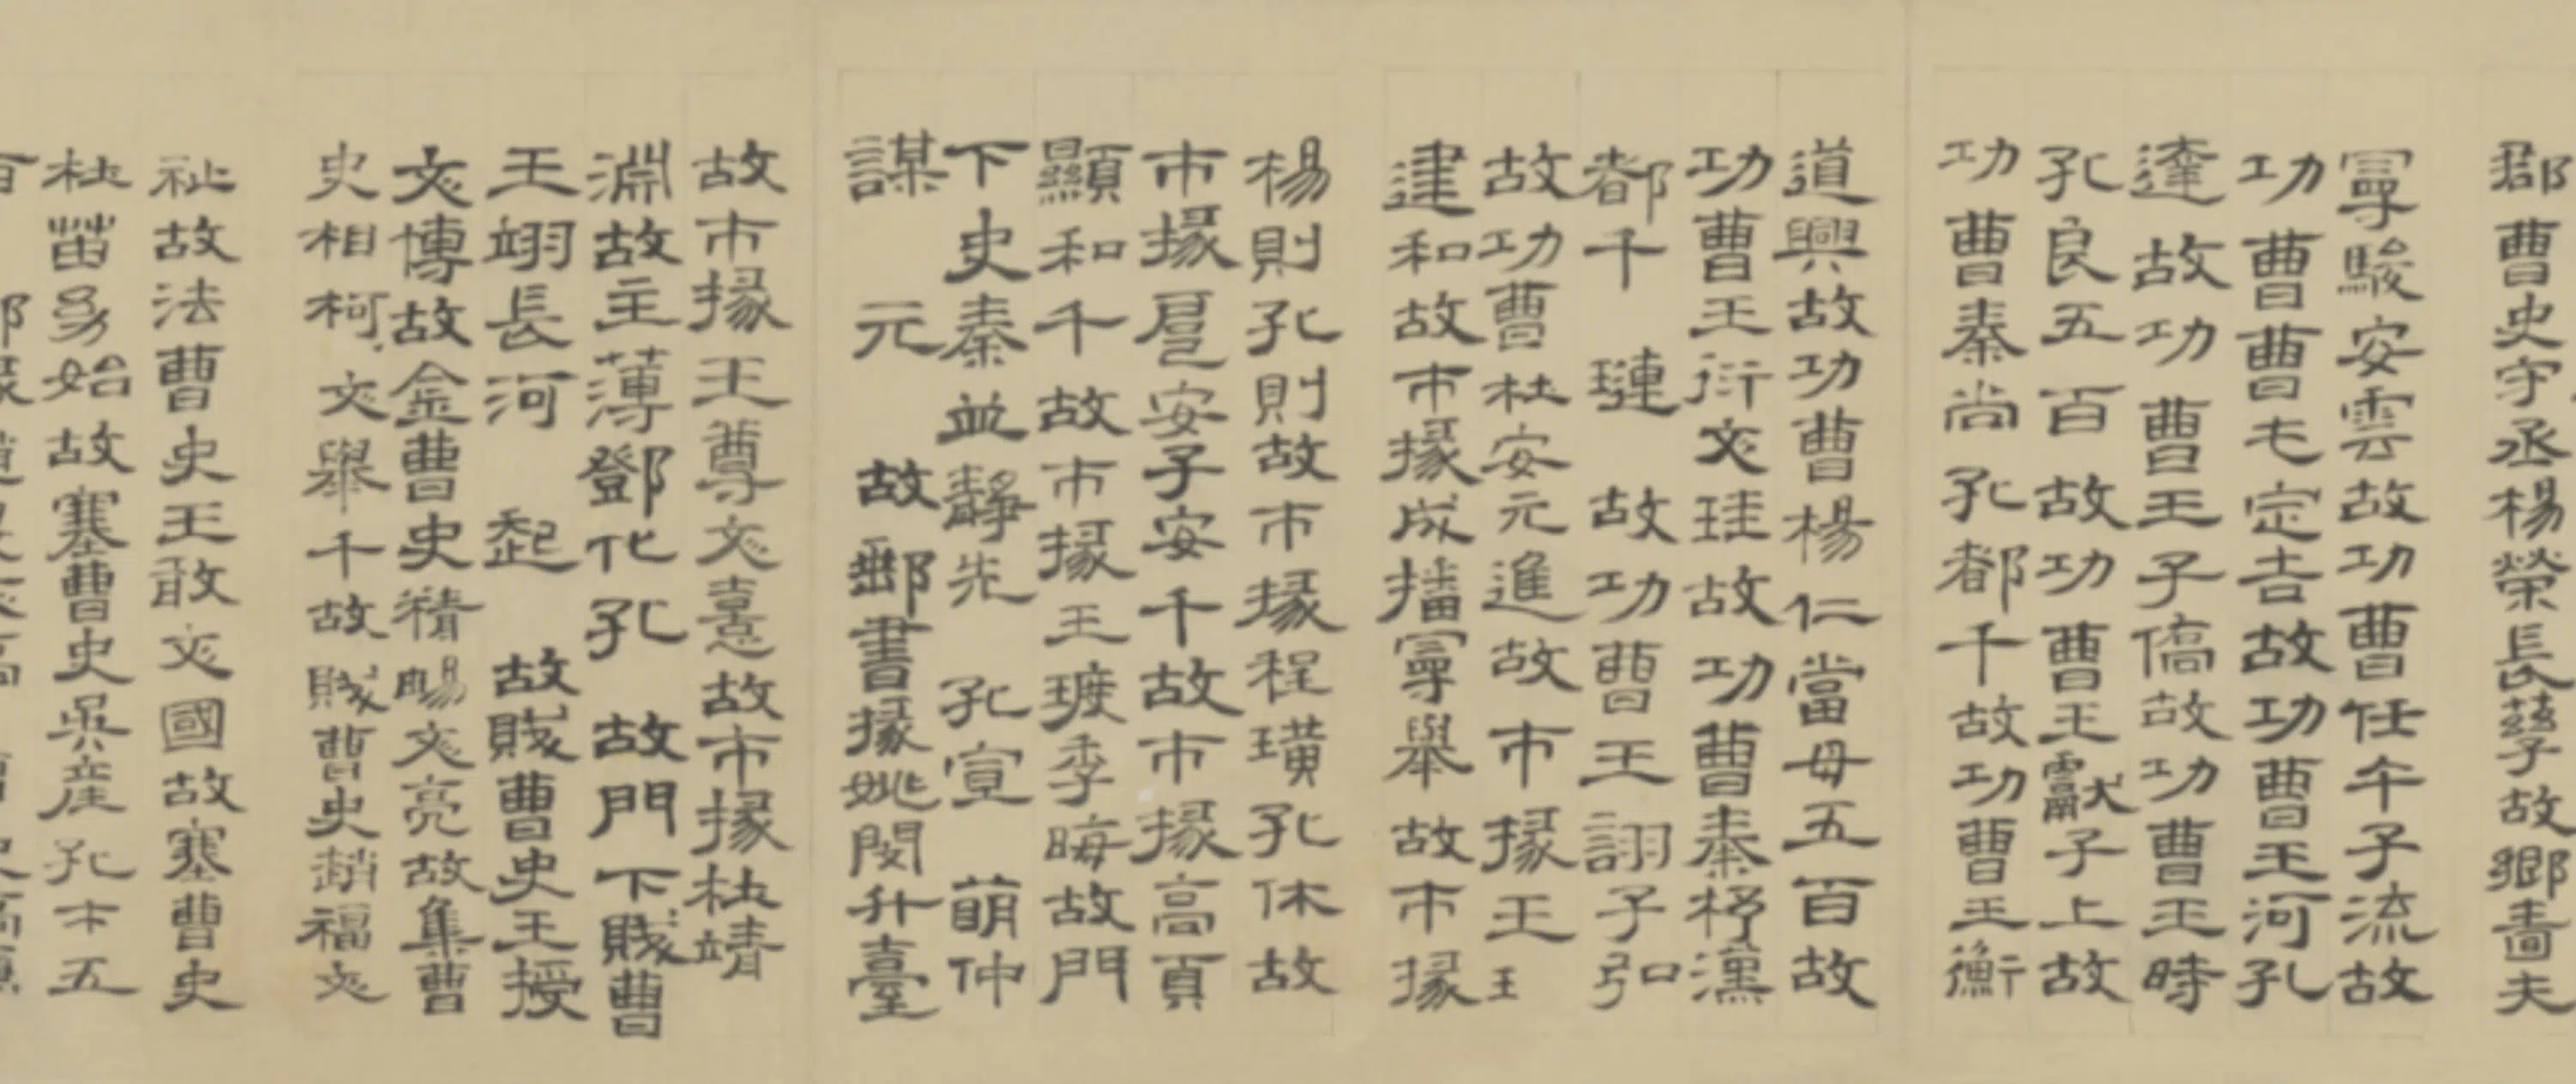 郡曹史守丞楊榮長孳故鄉嗇夫
寧駿安雲故功曹任午子流故
功曹曹屯定吉故功曹王河孔
達故功曹王子僑故功曹王時
孔良五百故功曹王獻子上故
功曹秦尚孔都千故功曹王衡
道興故功曹楊仁當母五百故
功曹王衍文珪故功曹秦杼漢
都千 璉 故功曹王詡子弘
故功曹杜安元進故市掾王王
建和故市掾成播寧舉故市掾
楊則孔則故市掾程璜孔休故
市掾扈安子安千故市掾高頁
顯和千故市掾王㻱季晦故門
下史秦並靜先 孔宣 萌仲
謀 元 故郵書掾姚閔升臺
故市掾王尊文憙故市掾杜靖
淵故主薄鄧化孔 故門下賊曹
王翊長河 起 故賊曹史王授
文博故金曹史精暘文亮故集曹
史相柯文舉千故賊曹史趙福文
祉故法曹史王敢文國故塞曹史
杜苗易始故塞曹史吳產孔才五
百